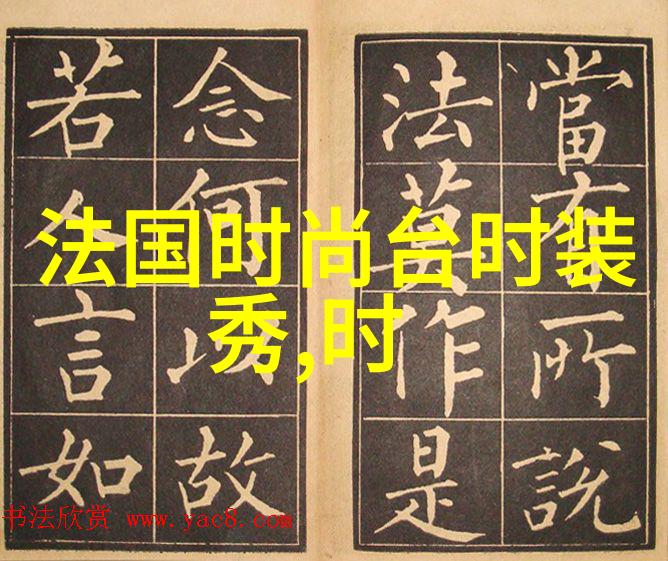 法国时尚台时装
秀,时
當有所說
法莫作是
念何以故
若人言如
书法欣赏 www.yac8.com